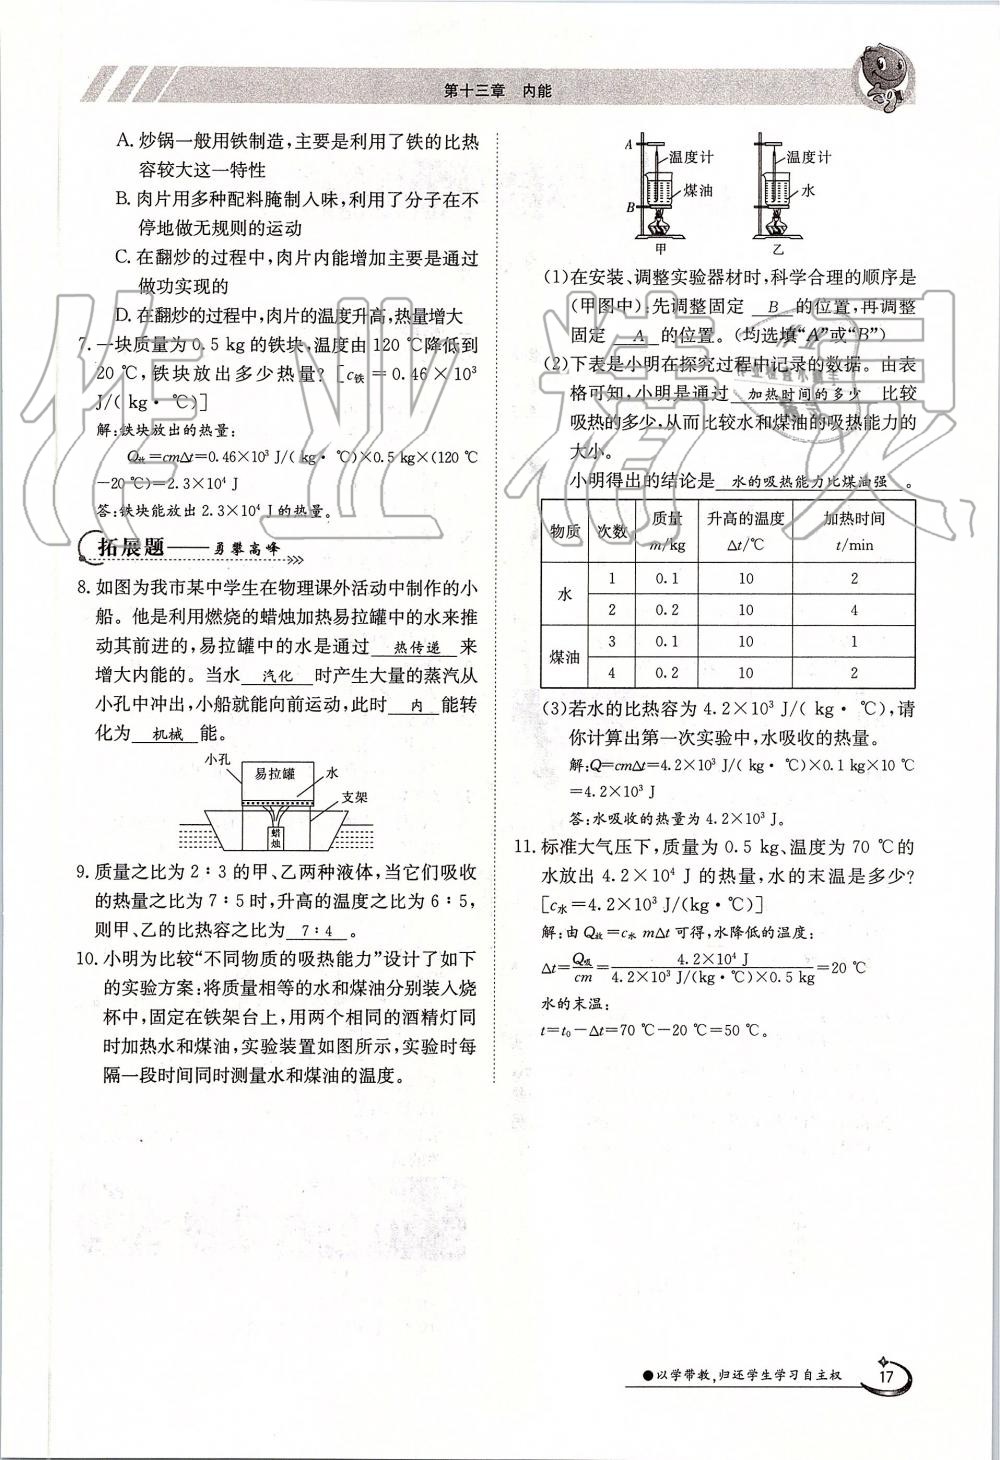 第十三章　内能
A. 炒锅一般用铁制造，主要是利用了铁的比热
容较大这一特性
B. 肉片用多种配料腌制入味，利用了分子在不
停地做无规则的运动
C. 在翻炒的过程中，肉片内能增加主要是通过
做功实现的
D. 在翻炒的过程中，肉片的温度升高，热量增大
7. 一块质量为 0.5 kg 的铁块，温度由 120 ℃降低到
20 ℃，铁块放出多少热量？[c铁＝0.46×10³
J/( kg· ℃)]
解：铁块放出的热量：
Q放＝cmΔt＝0.46×10³ J/( kg· ℃)×0.5 kg×(120 ℃
－20 ℃)＝2.3×10⁴ J
答：铁块能放出 2.3×10⁴ J 的热量。
拓展题——勇攀高峰
8. 如图为我市某中学生在物理课外活动中制作的小
船。他是利用燃烧的蜡烛加热易拉罐中的水来推
动其前进的，易拉罐中的水是通过 热传递 来
增大内能的。当水 汽化 时产生大量的蒸汽从
小孔中冲出，小船就能向前运动，此时 内 能转
化为 机械 能。
小孔
易拉罐
水
支架
蜡
烛
9. 质量之比为 2∶3 的甲、乙两种液体，当它们吸收
的热量之比为 7∶5 时，升高的温度之比为 6∶5，
则甲、乙的比热容之比为 7∶4 。
10. 小明为比较“不同物质的吸热能力”设计了如下
的实验方案：将质量相等的水和煤油分别装入烧
杯中，固定在铁架台上，用两个相同的酒精灯同
时加热水和煤油，实验装置如图所示，实验时每
隔一段时间同时测量水和煤油的温度。
A
温度计
煤油
B
甲
温度计
水
乙
(1)在安装、调整实验器材时，科学合理的顺序是
(甲图中)：先调整固定 B 的位置，再调整
固定 A 的位置。(均选填“A”或“B”)
(2)下表是小明在探究过程中记录的数据。由表
格可知，小明是通过 加热时间的多少 比较
吸热的多少，从而比较水和煤油的吸热能力的
大小。
小明得出的结论是 水的吸热能力比煤油强 。
物质 次数 质量 m/kg 升高的温度 Δt/℃ 加热时间 t/min
水 1 0.1 10 2
2 0.2 10 4
煤油 3 0.1 10 1
4 0.2 10 2
(3)若水的比热容为 4.2×10³ J/( kg· ℃)，请
你计算出第一次实验中，水吸收的热量。
解：Q＝cmΔt＝4.2×10³ J/( kg· ℃)×0.1 kg×10 ℃
＝4.2×10³ J
答：水吸收的热量为 4.2×10³ J。
11. 标准大气压下，质量为 0.5 kg、温度为 70 ℃的
水放出 4.2×10⁴ J 的热量，水的末温是多少？
[c水＝4.2×10³ J/(kg·℃)]
解：由 Q放＝c水 mΔt 可得，水降低的温度：
Δt＝Q吸/cm＝4.2×10⁴ J/4.2×10³ J/(kg·℃)×0.5 kg＝20 ℃
水的末温：
t＝t₀－Δt＝70 ℃－20 ℃＝50 ℃。
作业精灵
●以学带教，归还学生学习自主权
17